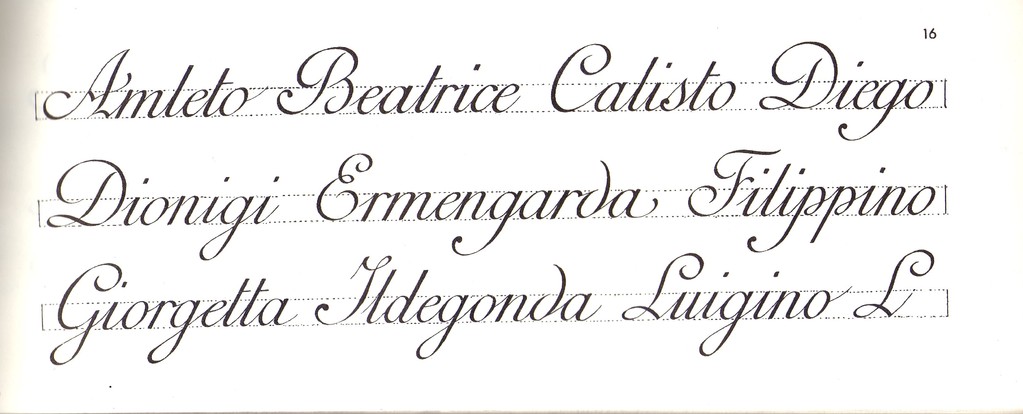 16
Amleto Beatrice Calisto Diego
Dionigi Ermengarda Filippino
Giorgetta Ildegonda Luigino L